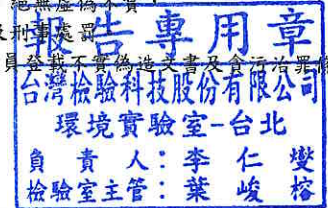 絕無虛偽不實，
及刑事處罰
員登載不實偽造文書及貪污治罪條
報告專用章
台灣檢驗科技股份有限公司
環境實驗室-台北
負責人：李仁燮
檢驗室主管：葉峻榕